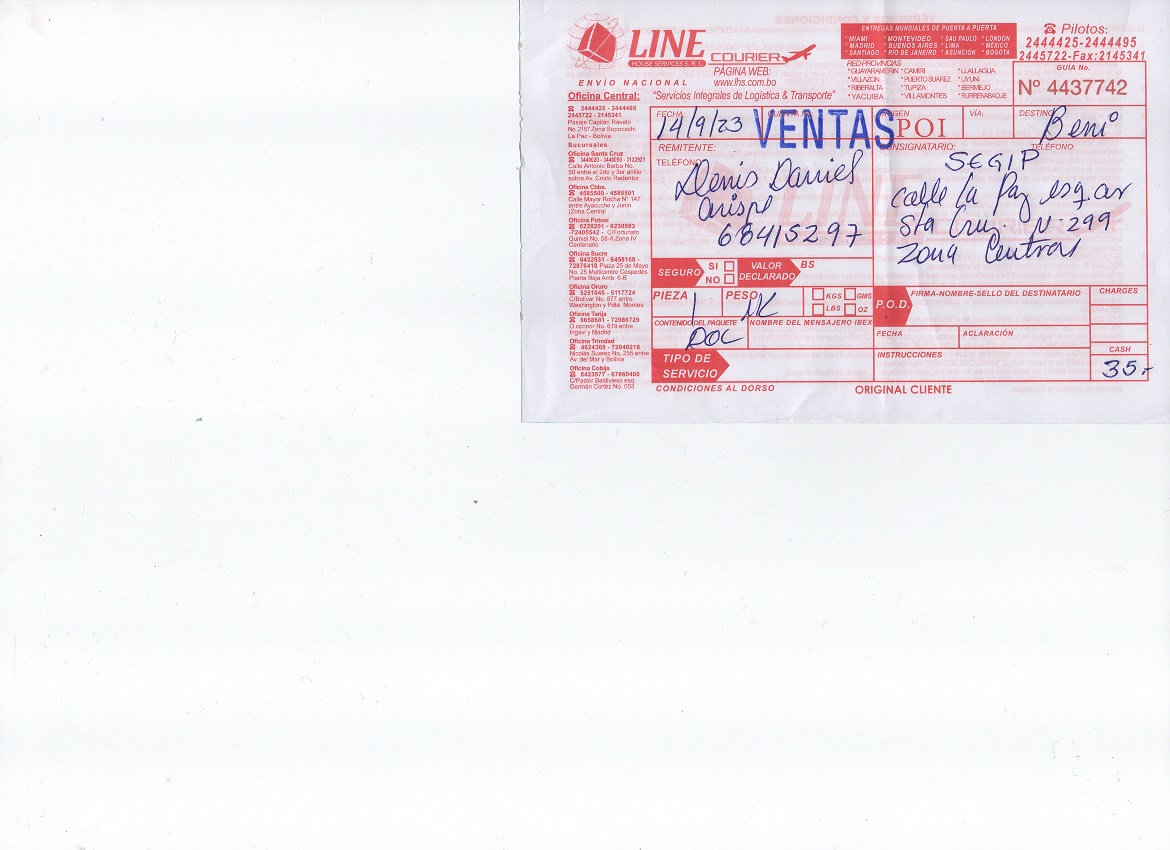 LINE
HOUSE SERVICES S.R.L.
COURIER
PÁGINA WEB:
www.lhs.com.bo
ENVÍO NACIONAL
"Servicios Integrales de Logística & Transporte"
ENTREGAS MUNDIALES DE PUERTA A PUERTA
* MIAMI * MONTEVIDEO * SAU PAULO * LONDON
* MADRID * BUENOS AIRES * LIMA * MÉXICO
* SANTIAGO * RÍO DE JANEIRO * ASUNCIÓN * BOGOTA
RED PROVINCIAS
* GUAYARAMERIN * CAMIRI * LLALLAGUA
* VILLAZON * PUERTO SUAREZ * UYUNI
* RIBERALTA * TUPIZA * BERMEJO
* YACUIBA * VILLAMONTES * RURRENABAQUE
Pilotos:
2444425-2444495
2445722-Fax:2145341
GUIA No.
Nº 4437742
Oficina Central:
2444425 - 2444495
2445722 - 2145341
Pasaje Capitán Ravelo
No.2157 Zona Sopocachi
La Paz - Bolivia
Sucursales
Oficina Santa Cruz
3448020 - 3448050 - 3122921
Calle Antonio Barba No.
56 entre el 2do y 3er anillo
sobre Av. Cristo Redentor
Oficina Cbba.
4585500 - 4585501
Calle Mayor Rocha N° 147
entre Ayacucho y Junín
(Zona Central
Oficina Potosí
6228201 - 6230583
-72405542 - C/Fortunato
Gumiel No. 58-A Zona IV
Centenario
Oficina Sucre
6432931 - 6458168 -
72876418 Plaza 25 de Mayo
No. 25 Multicentro Céspedes
Planta Baja Amb. 6-B
Oficina Oruro
5251045 - 5117724
C/Bolívar No. 877 entre
Washington y Pdte. Montes
Oficina Tarija
6658681 - 72986729
D.connor No. 619 entre
Ingavi y Madrid
Oficina Trinidad
4624305 - 72840218
Nicolás Suarez No. 255 entre
Av. del Mar y Bolivia
Oficina Cobija
8423577 - 67660400
C/Pastor Baldivieso esq.
Germán Cortéz No. 053
FECHA:
14/9/23
VENTAS
POI
VÍA:
DESTINO
Beni
REMITENTE:
TELÉFONO
Denis Daniel
Quispe
68415297
CONSIGNATARIO:
TELÉFONO
SEGIP
calle La Paz esq. av
Sta Cruz. N-299
Zona Central
SEGURO
SI
NO
VALOR
DECLARADO
BS
PIEZA
1
PESO
KGS
GMS
LBS
OZ
CONTENIDO DEL PAQUETE
DOC
NOMBRE DEL MENSAJERO IBEX
TIPO DE
SERVICIO
P.O.D.
FIRMA-NOMBRE-SELLO DEL DESTINATARIO
FECHA
ACLARACIÓN
INSTRUCCIONES
CHARGES
CASH
35.-
CONDICIONES AL DORSO
ORIGINAL CLIENTE